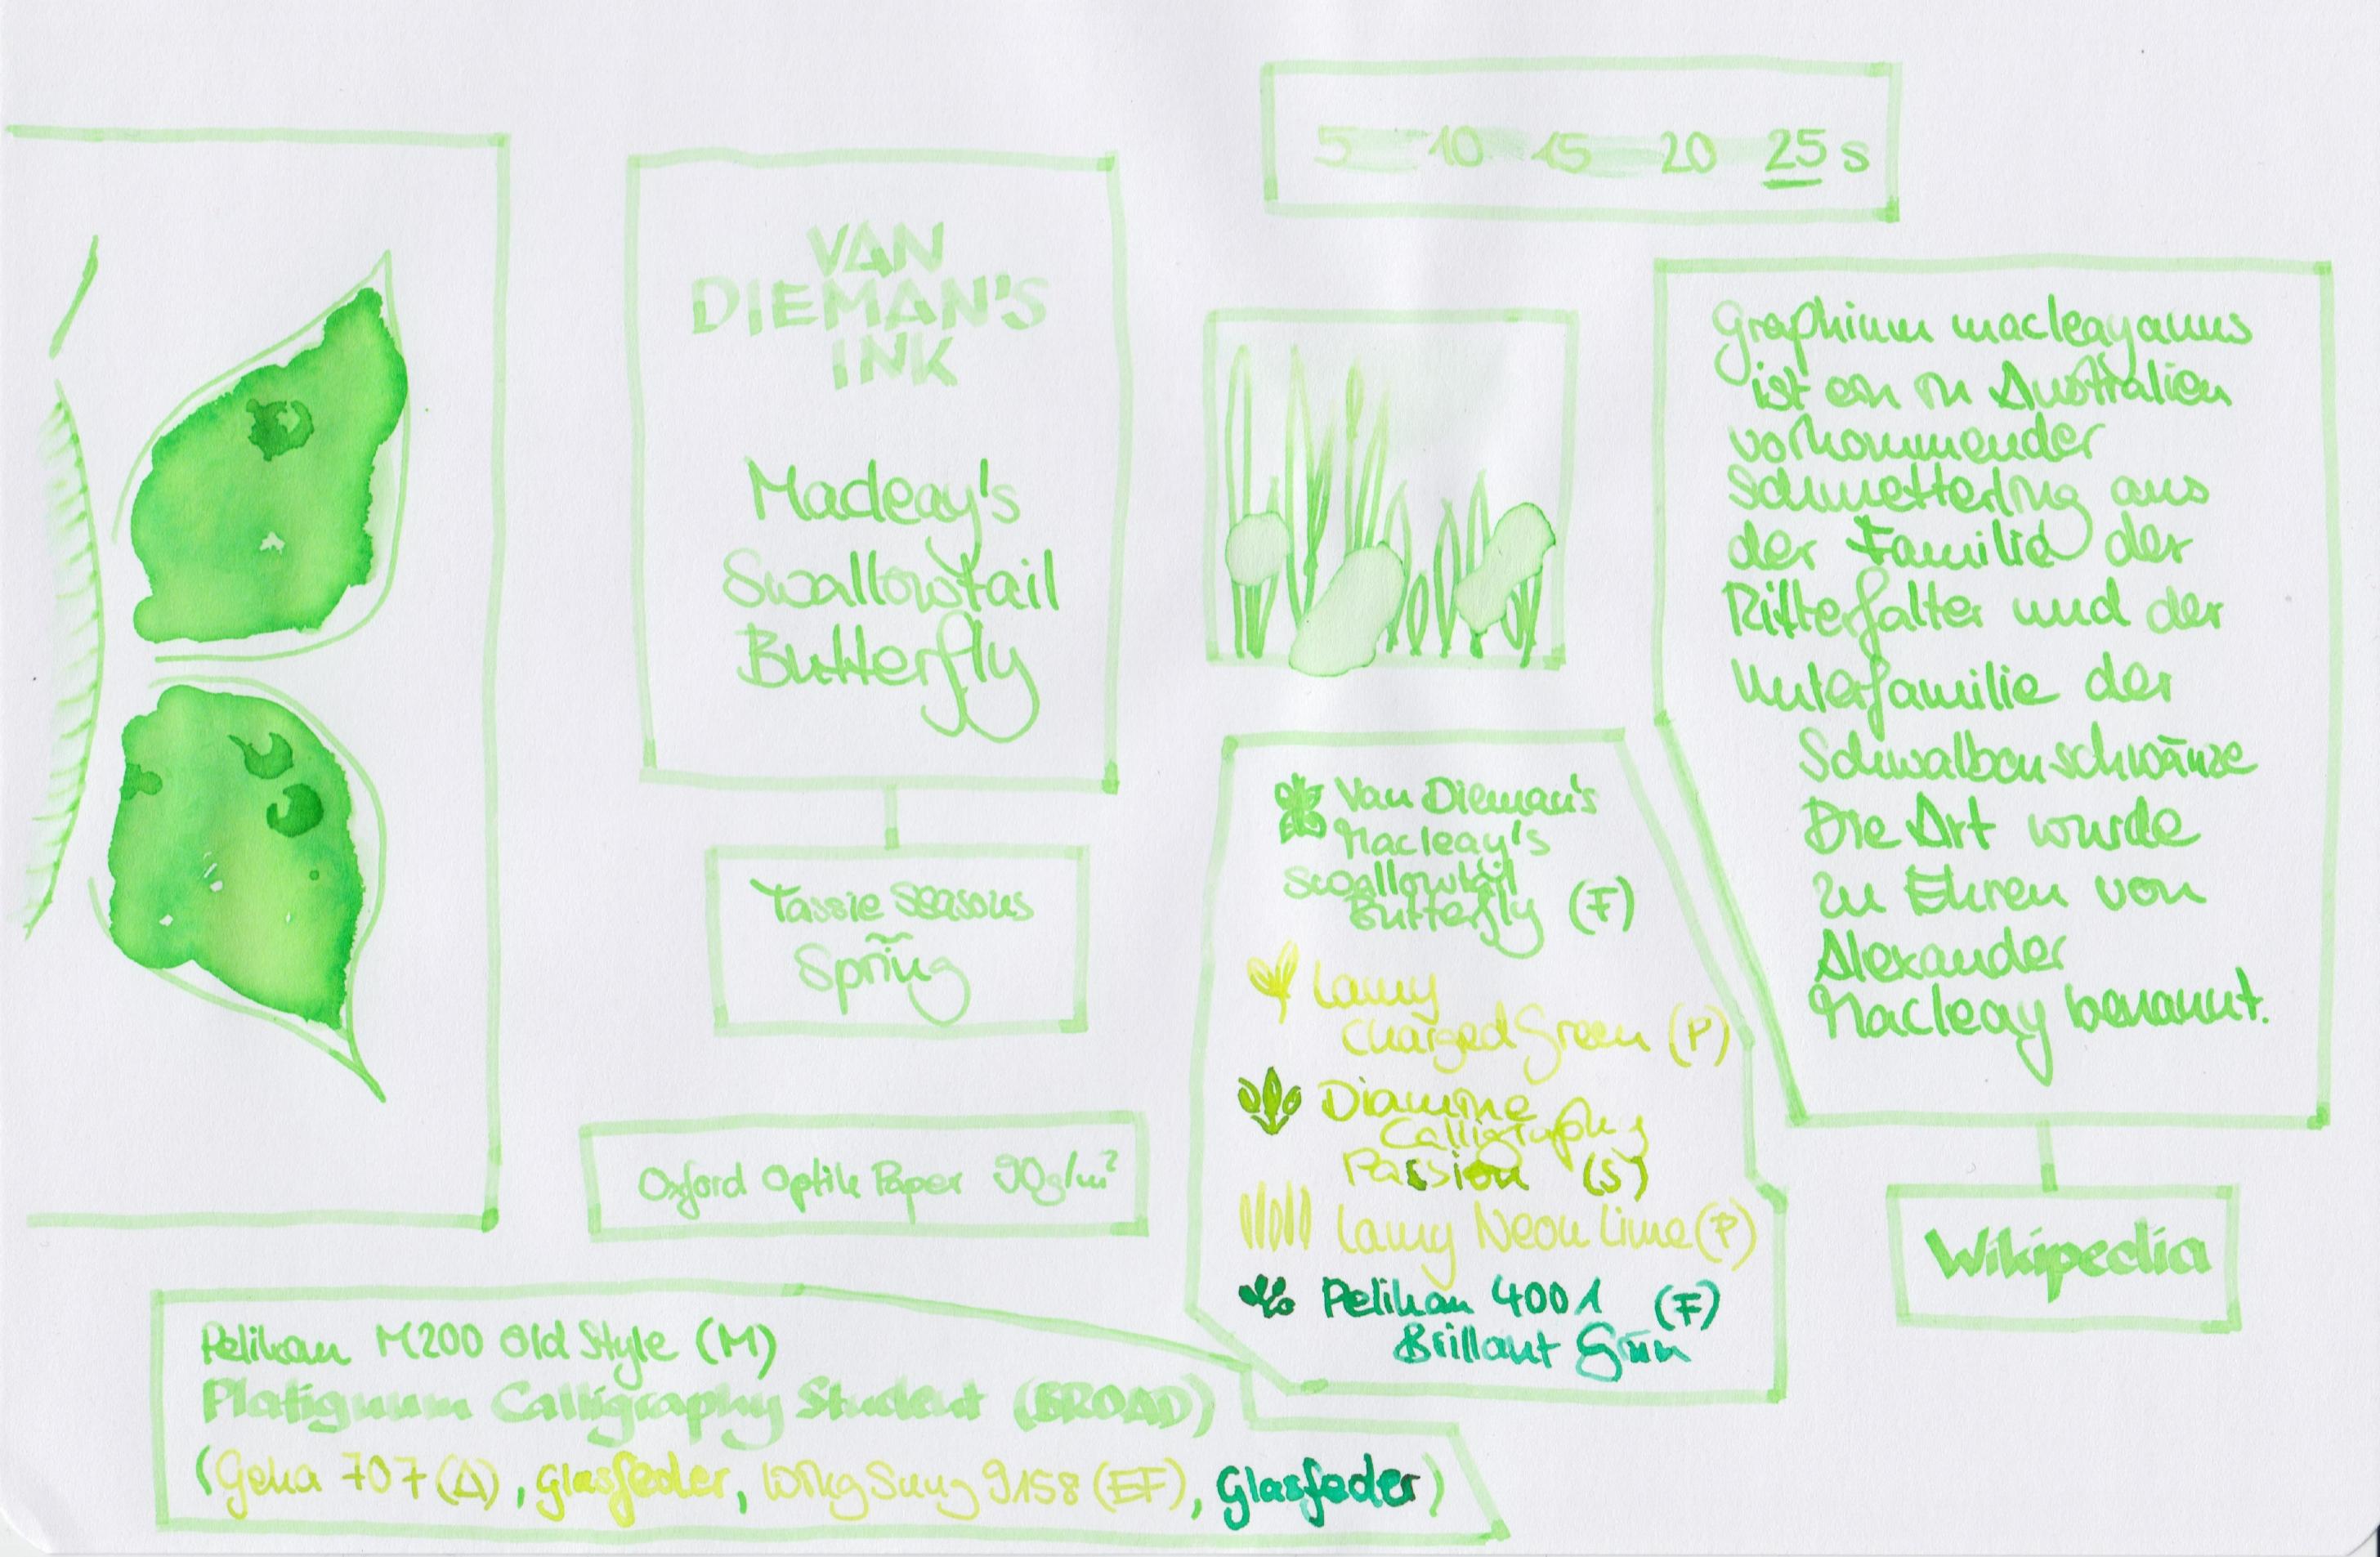 5 10 15 20 25 s
VAN
DIEMAN'S
INK
Macleay's
Swallowtail
Butterfly
Tassie Seasons
~
Spring
Oxford Optik Paper 90g/m²
Graphium macleayanus
ist ein in Australien
vorkommender
Schmetterling aus
der Familie der
Ritterfalter und der
Unterfamilie der
Schwalbenschwänze
Die Art wurde
zu Ehren von
Alexander
Macleay benannt.
Wikipedia
Van Dieman's
Macleay's
Swallowtail
Butterfly (F)
Lamy
Charged Green (P)
Diamine
Calligraphy
Passion (S)
Lamy Neon Lime (P)
Pelikan 4001 (F)
Brillant Grün
Pelikan M200 Old Style (M)
Platignum Calligraphy Student (BROAD)
(Geha 707 (A), Glasfeder, Wing Sung 9158 (EF), Glasfeder)